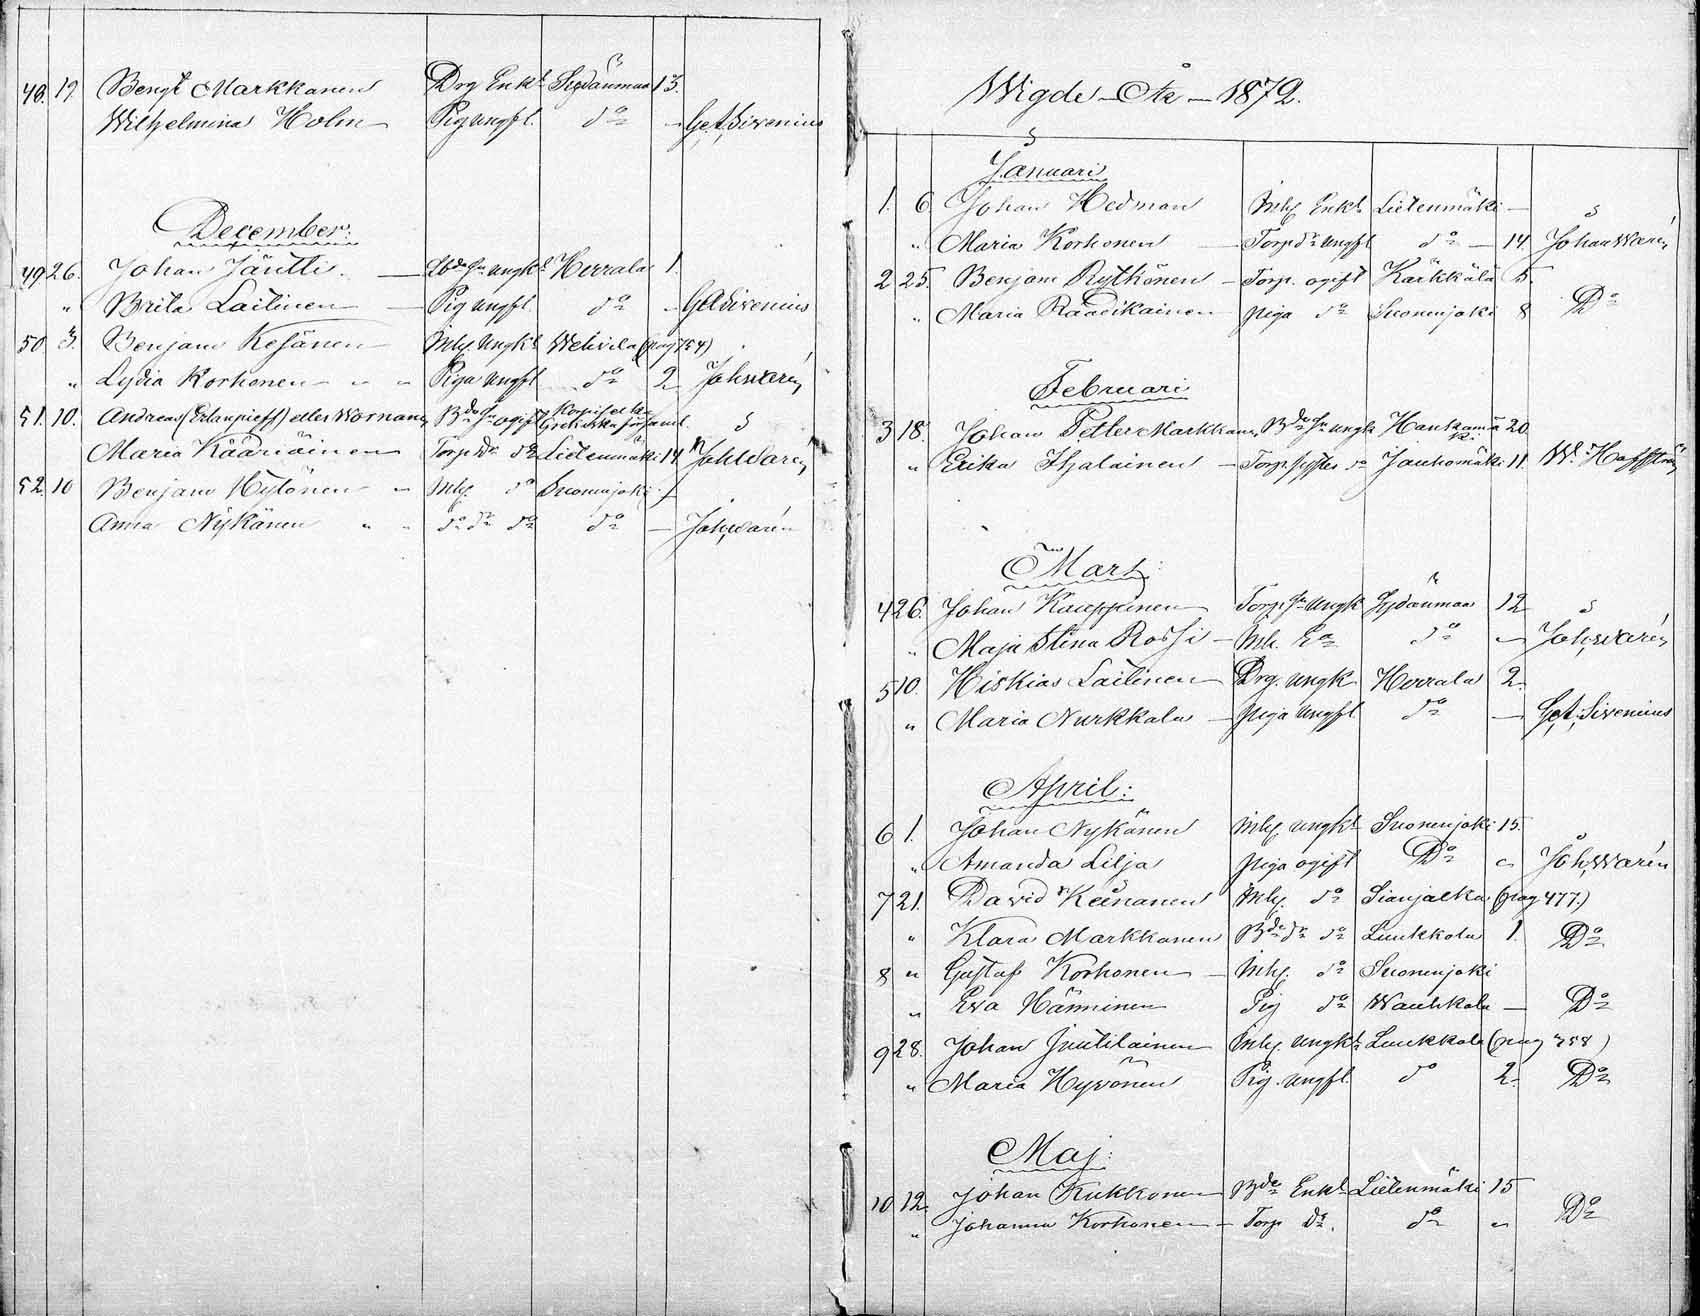 48. 19. Bengt Markkanen Drg Enkl Sydänmaa 13.
Wilhelmina Holm Pig ungfl. do G. A. Sirenius
December:
49 26. Johan Jäntti. Bde Sn ungkl Herrala 1.
" Brita Laitinen Pig ungfl. do G A Sirenius
50. 3. Benjam Kesänen Inhy. Ungkl Wehvilä (pag 754)
" Lydia Korhonen Piga ungfl do 2 Joh. Warén
51. 10. Andreas (Erlanpieff) eller Wornanen Bde Sn ogift Grekiska församl.
Maria Kääriäinen Torp Dr do Lietenmäki 14 Joh. Warén
52. 10 Benjam Hytönen Inhy. do Suonenjoki
Anna Nykänen do dr do do Joh. Warén
Wigde År 1872.
Januari
1. 6. Johan Hedman Inhy Enkl Lietenmäki
" Maria Korhonen Torp dr ungfl do 14. Johan Warén
2 25. Benjam Rytkönen Torp. ogift Kärkkälä 5.
" Maria Räädikäinen piga do Suonenjoki 8 Do
Februari
3 18. Johan Petter Markkanen Bde Sn ungk Hankamäki 20
" Erika Hjalainen Torp. syster do Jauhomäki 11. W. Hoffström
Mars:
4 26. Johan Kauppinen Torp. Sn ungk Sydänmaa 12
" Maja Stina Rossi Inh. Ea do Joh. Warén
5 10. Hiskias Laitinen Drg. ungk Herrala 2.
" Maria Nurkkala piga ungfl do G. A. Sirenius
April:
6 1. Johan Nykänen Inhy. ungkl Suonenjoki 15.
" Amanda Lilja piga ogift Do " Joh. Warén
7 21. David Keinänen Inhy. do Sianjalka (pag 477.)
" Klara Markkanen Bde dr do Luukkola 1. Do
8 " Gustaf Korhonen Inhy. do Suonenjoki
" Eva Hänninen Pig do Wauhkola Do
9 28. Johan Juutilainen Inhy. ungkl Luukkola (pag 758)
" Maria Hyvönen Pig. ungfl. do 2. Do
Maj:
10 12. Johan Kukkonen Bde Enkl Lietenmäki 15
" Johanna Korhonen Torp Dr. do " Do